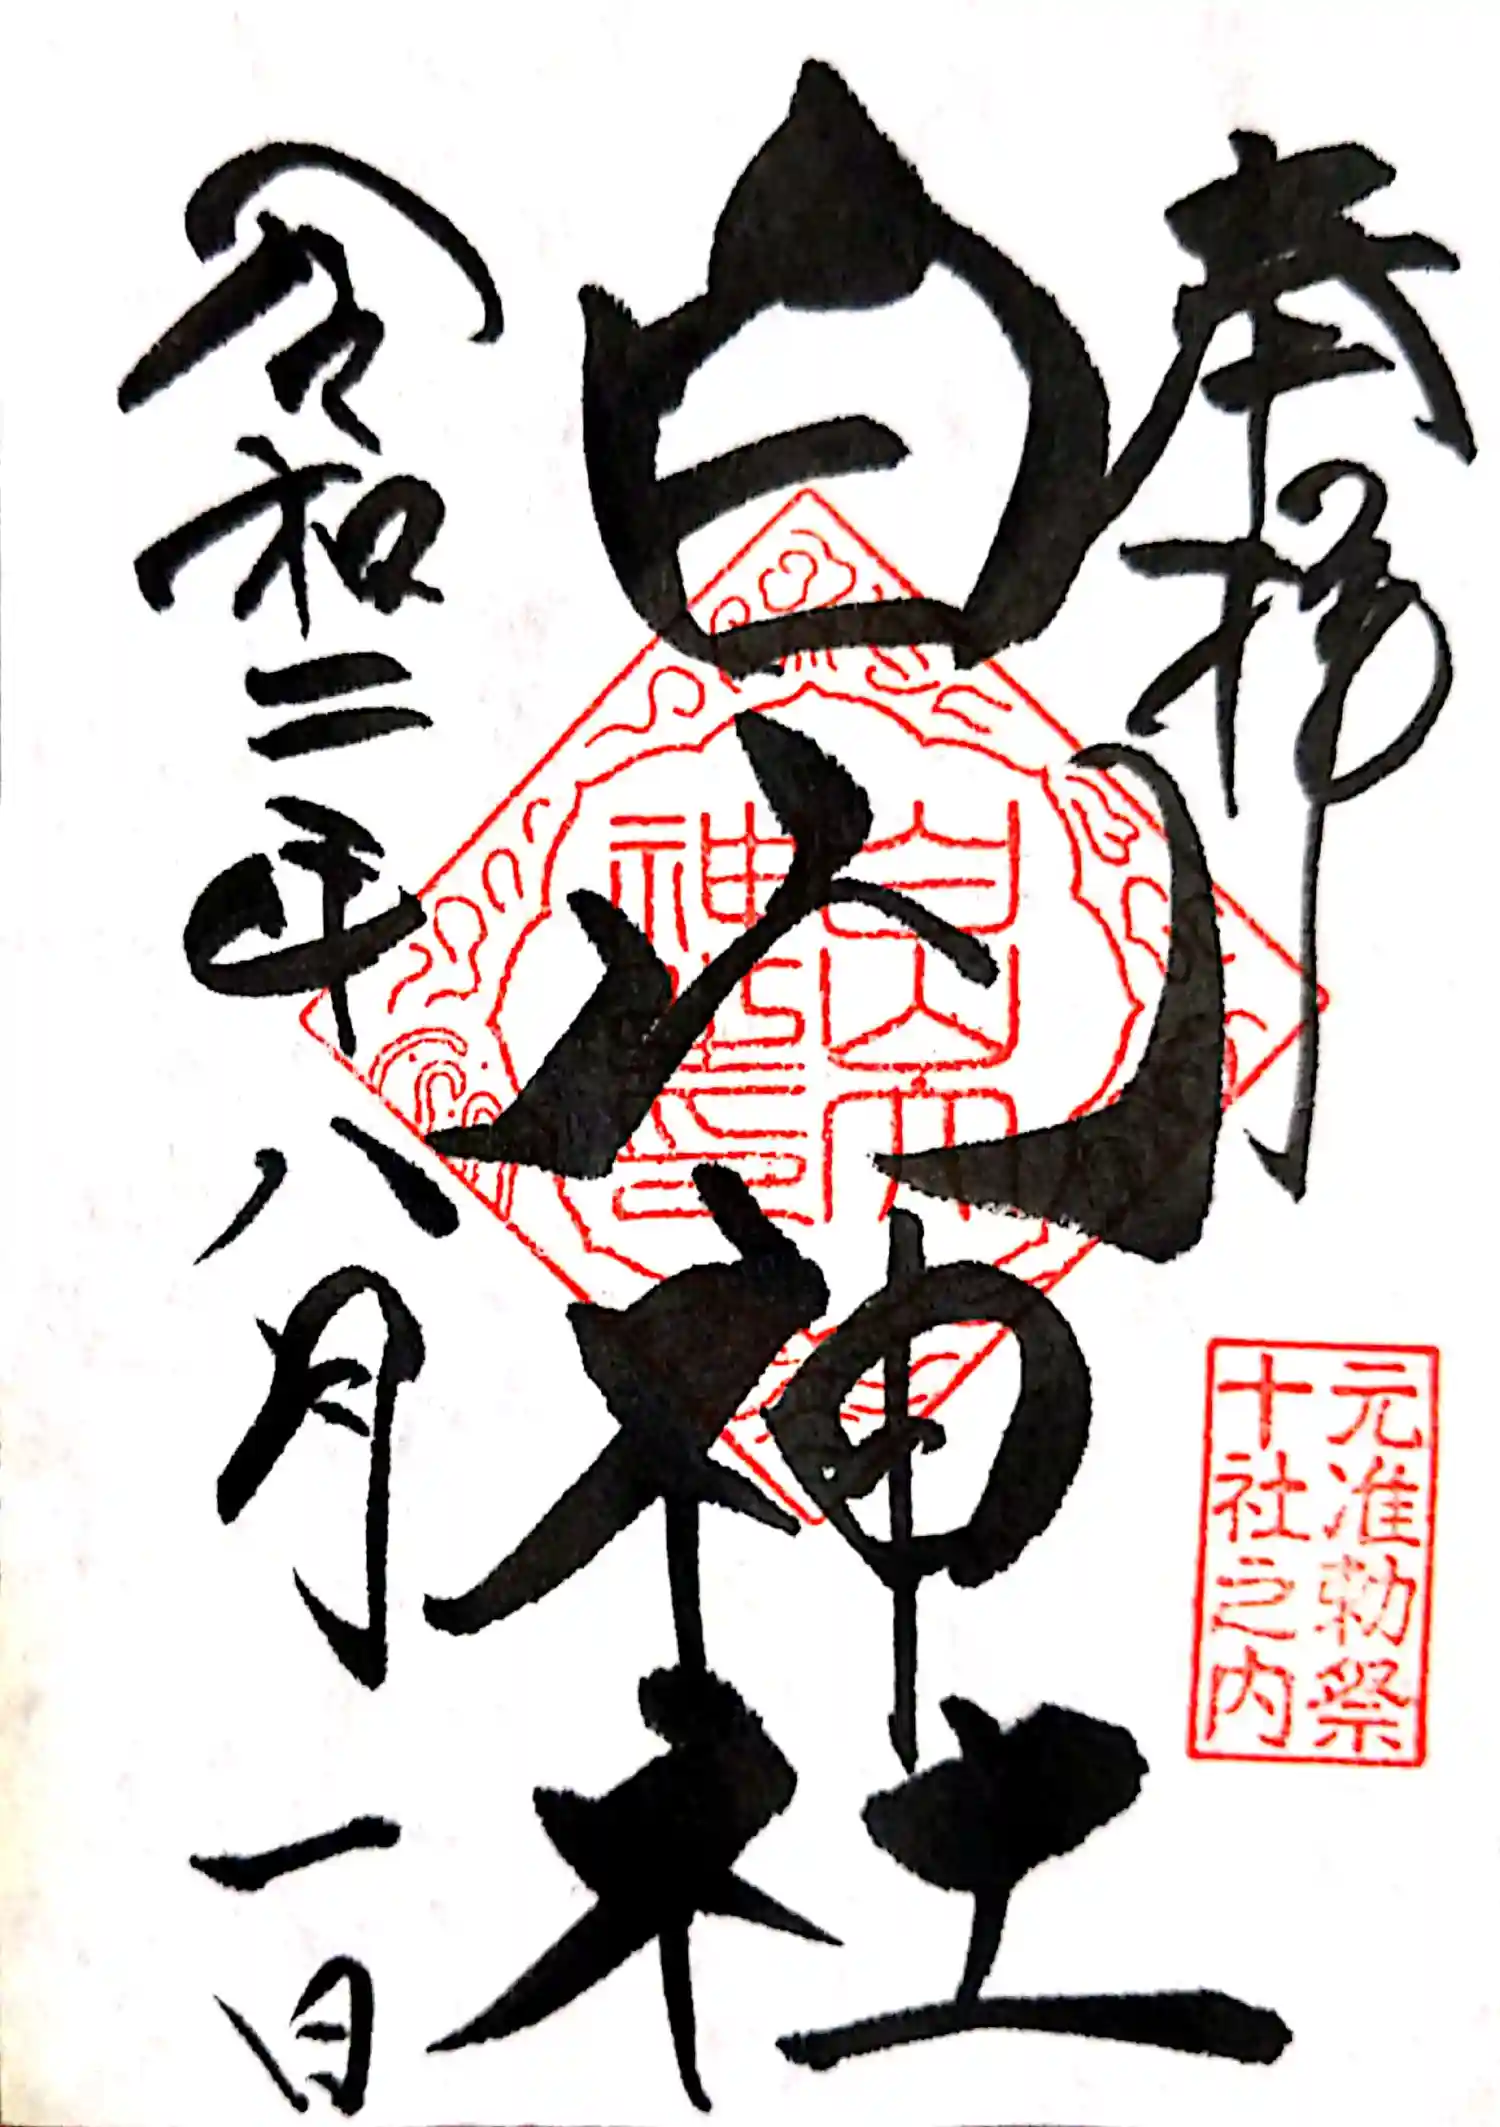 奉拝
元准勅祭
十社之内
白山神社
白山神社之印
令和二年八月一日